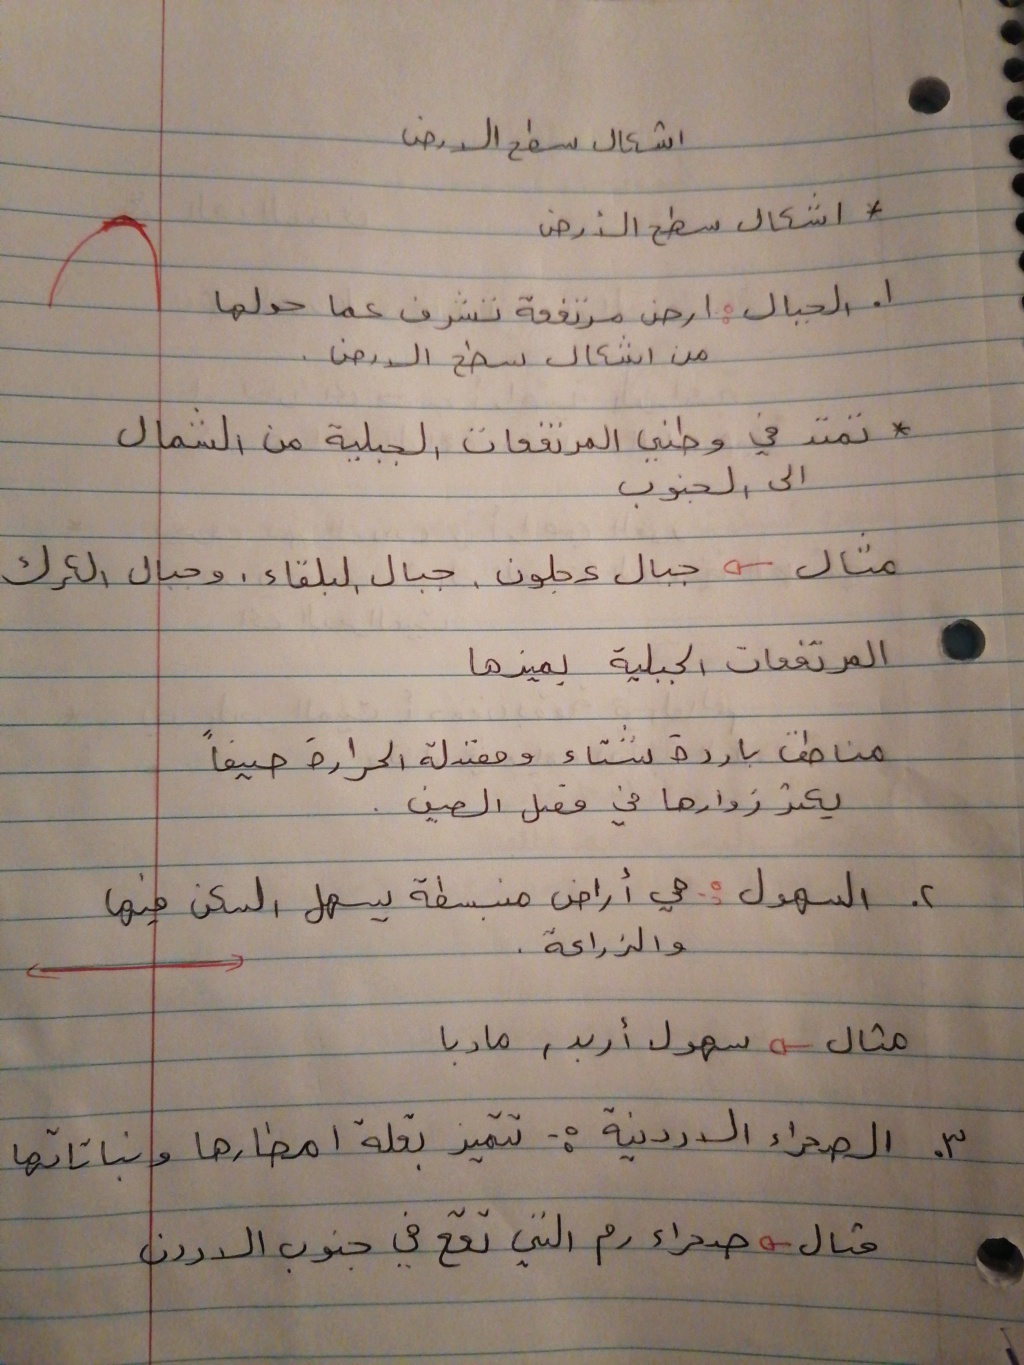 اشكال سطح الارض
* اشكال سطح الارض
١. الجبال : ارض مرتفعة تشرف عما حولها
من اشكال سطح الارض .
* تمتد في وطني المرتفعات الجبلية من الشمال
الى الجنوب
مثال ← جبال عجلون , جبال البلقاء , وجبال الكرك
المرتفعات الجبلية يميزها
مناطق باردة شتاء ومعتدلة الحرارة صيفاً
يكثر زوارها في فصل الصيف .
٢. السهول :- هي أراض منبسطة يسهل السكن فيها
والزراعة .
مثال ← سهول أربد , مادبا
٣. الصحراء الاردنية :- تتميز بقلة امطارها ونباتاتها
مثال ← صحراء رم التي تقع في جنوب الاردن